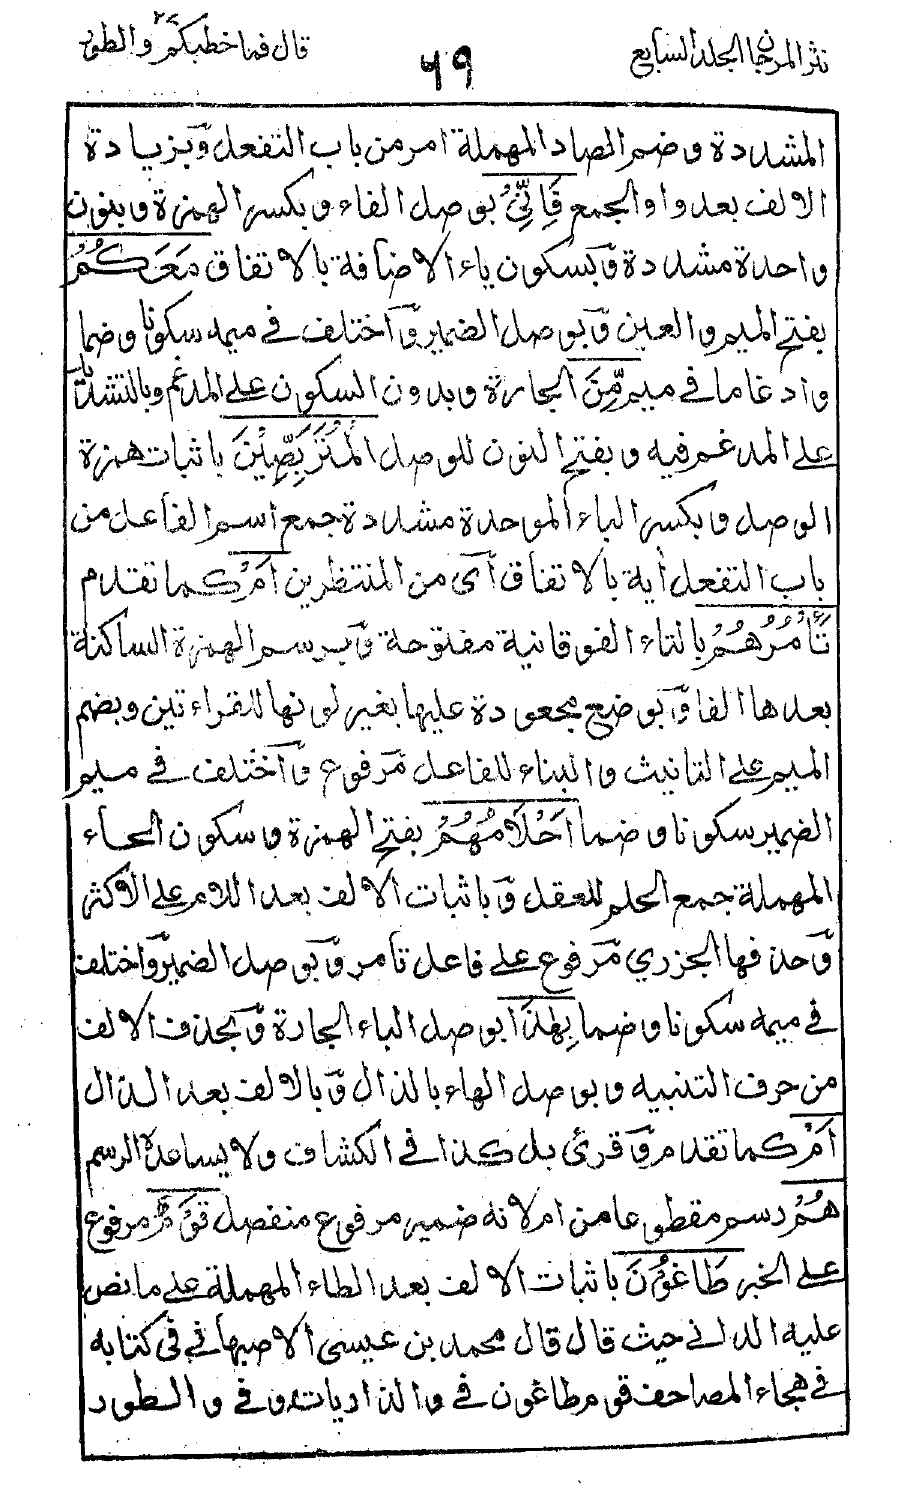 نثر المرجان الجلد السابع
٦٩
قال فما خطبكم ٢٧ والطور
المشددة وضم الصاد المهملة امر من باب التفعل وبزيادة
الالف بعد واو الجمع فَاِنِّيْ بوصل الفاء وبكسر الهمزة وبنون
واحدة مشددة وبسكون ياء الاضافة بالاتفاق مَعَكُمْ
بفتح الميم والعين وبوصل الضمير واختلف في ميمه سكونا وضما
وادغاما في ميم مِّنَ الجارة وبدون السكون على المدغم وبالتشديد
على المدغم فيه وبفتح النون للوصل الْمُتَرَبِّصِيْنَ باثبات همزة
الوصل وبكسر الباء الموحدة مشددة جمع اسم الفاعل من
باب التفعل أية بالاتفاق اى من المنتظرين اَمْ كما تقدم
تَأْمُرُهُمْ بالتاء الفوقانية مفتوحة وبرسم الهمزة الساكنة
بعدها الفا وبوضع مجعودة عليها بغير لونها للقراءتين وبضم
الميم على التانيث والبناء للفاعل مرفوع واختلف في ميم
الضمير سكونا وضما اَحْلَامُهُمْ بفتح الهمزة وسكون الحاء
المهملة جمع الحلم للعقل وباثبات الالف بعد اللام على الاكثر
وحذفها الجزري مرفوع على فاعل تأمر وبوصل الضمير واختلف
في ميمه سكونا وضما بِهٰذَا بوصل الباء الجارة وبحذف الالف
من حرف التنبيه وبوصل الهاء بالذال وبالالف بعد الذال
اَمْ كما تقدم وقرئ بل كذا في الكشاف ولا يساعده الرسم
هُمْ رسم مقطوعا من ام لانه ضمير مرفوع منفصل قَوْمٌ مرفوع
على الخبر طَاغُوْنَ باثبات الالف بعد الطاء المهملة على ما نص
عليه الداني حيث قال قال محمد بن عيسى الاصبهاني في كتابه
في هجاء المصاحف قوم طاغون في والذاريات وفي والطور